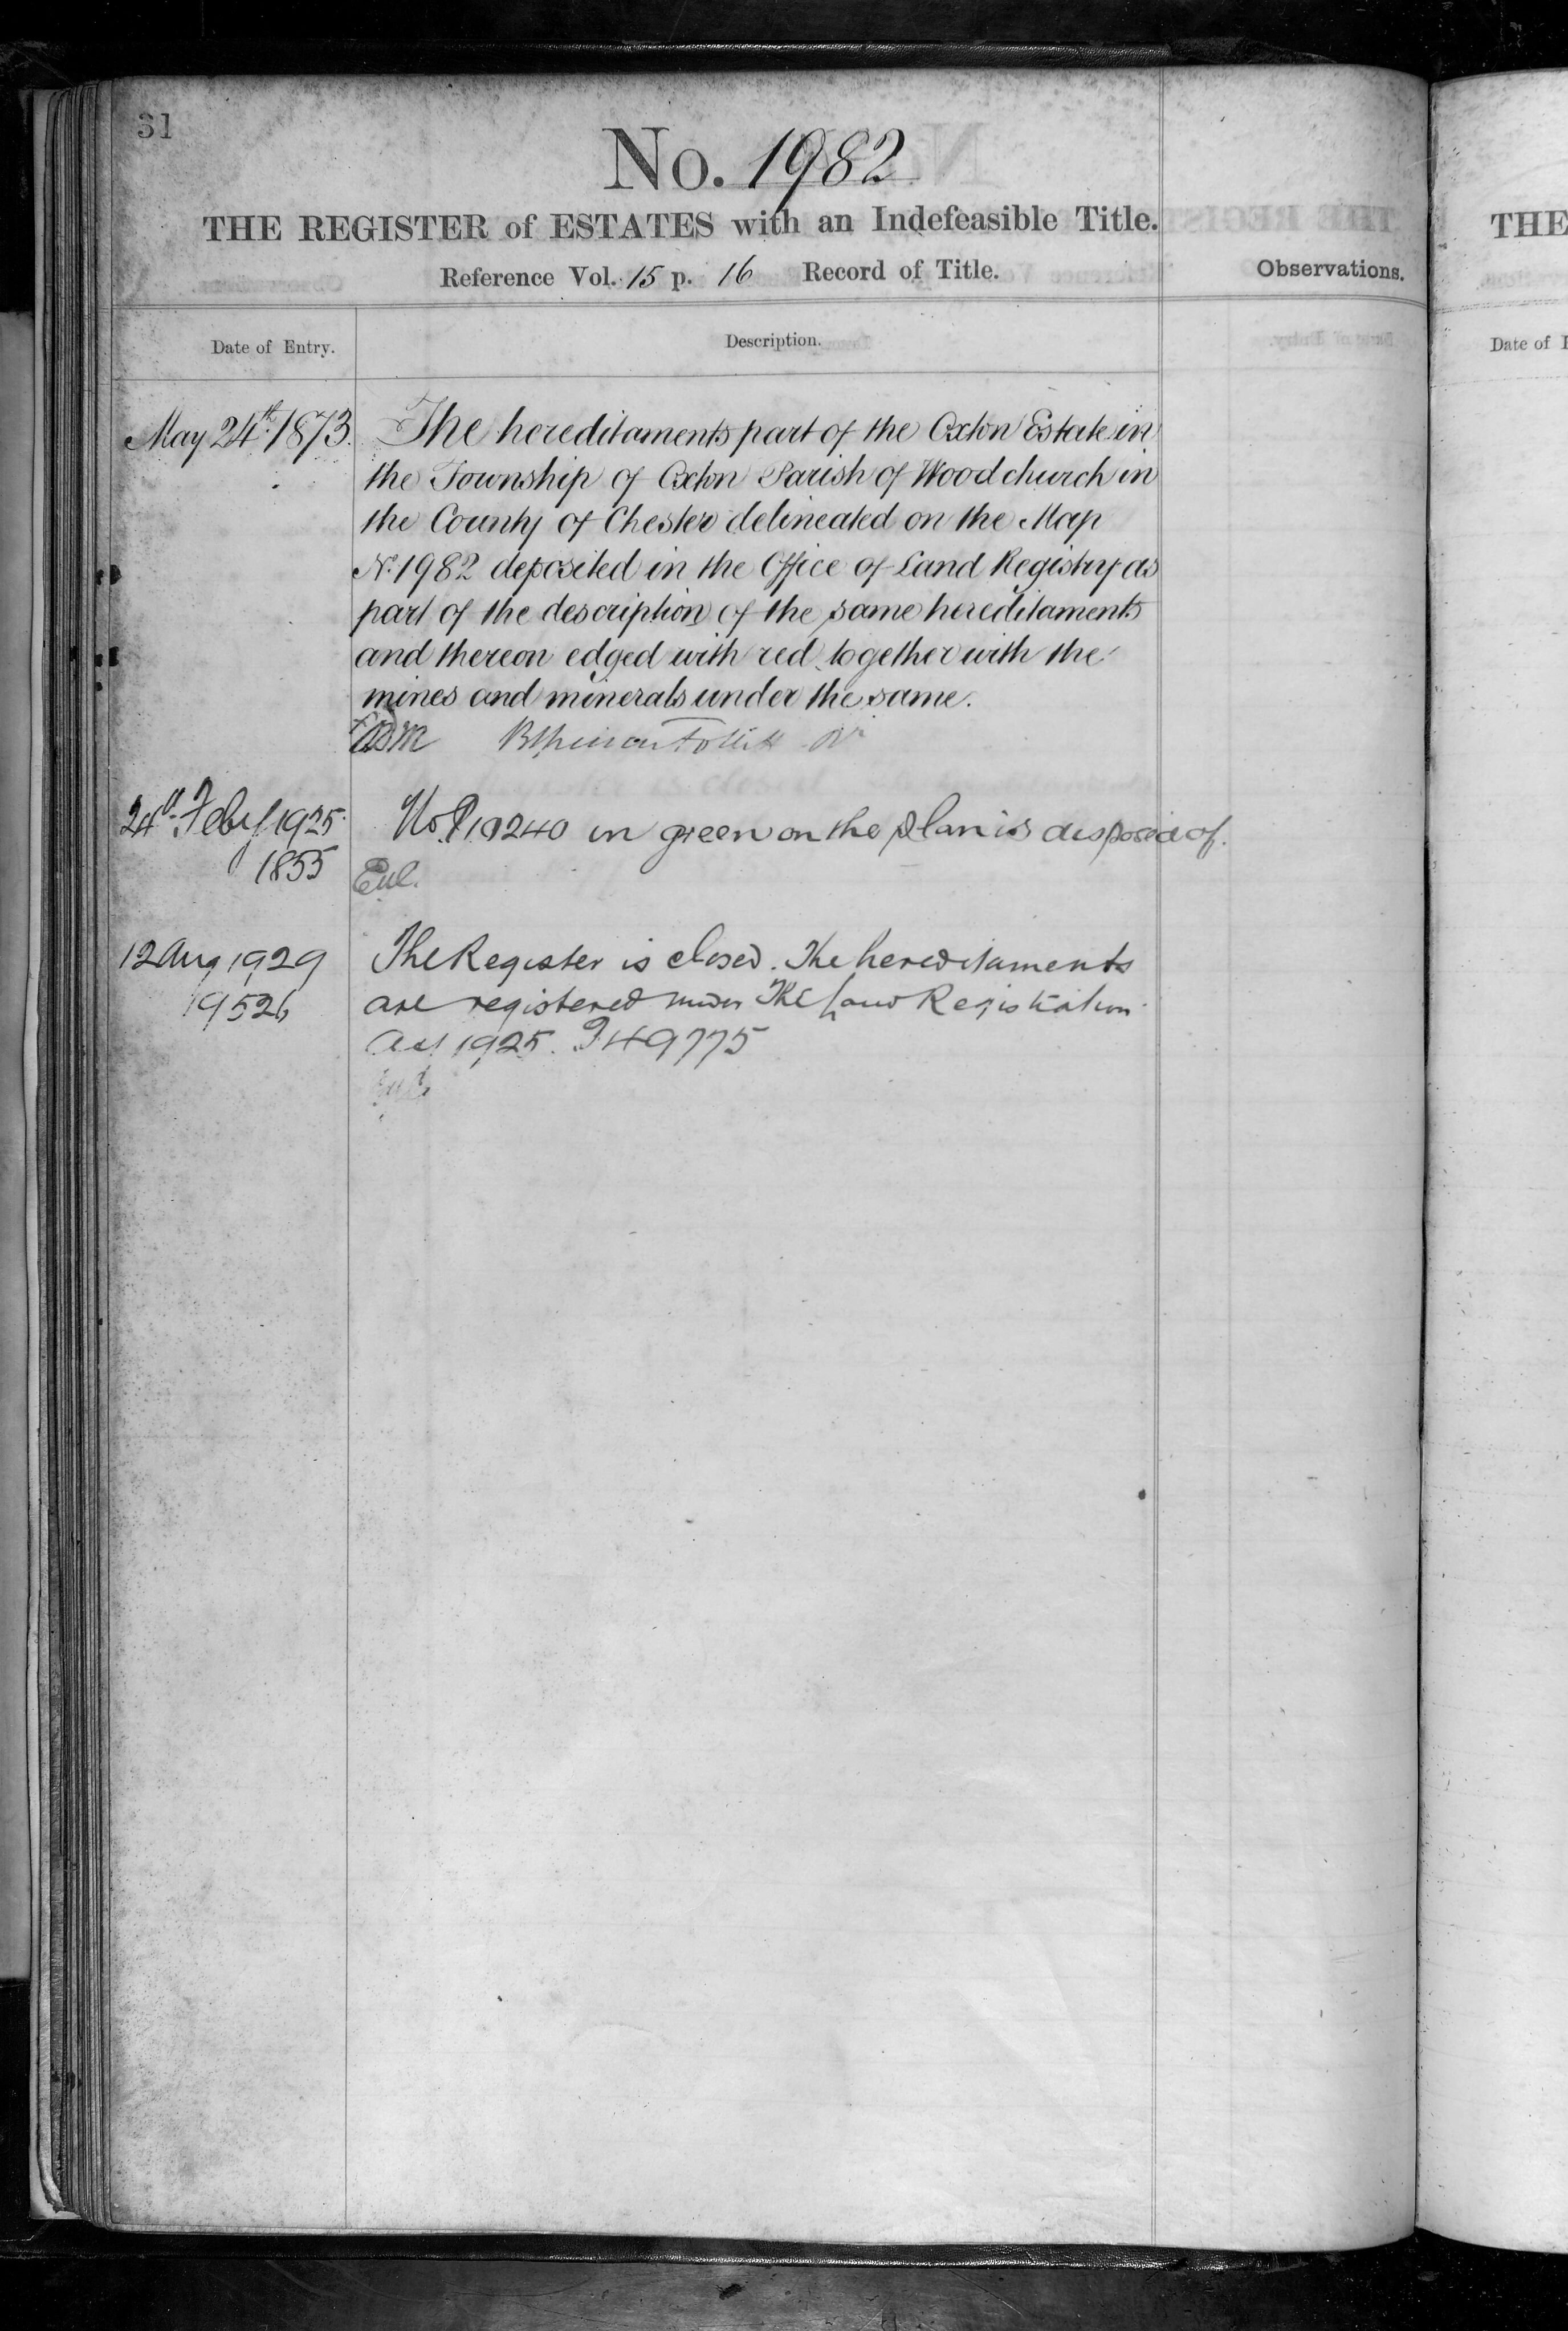 31
No. 1982
THE REGISTER of ESTATES with an Indefeasible Title.
Reference Vol. 15 p. 16 Record of Title.
Observations.
Date of Entry.
Description.
May 24th. 1873.
The hereditaments part of the Oxton Estate in
the Township of Oxton Parish of Woodchurch in
the County of Chester delineated on the Map
No. 1982 deposited in the Office of Land Registry as
part of the description of the same hereditaments
and thereon edged with red together with the
mines and minerals under the same.
24th Feby 1925
1855
No. P10240 in green on the plan is disposed of.
12 Aug 1929
19526
The Register is closed. The hereditaments
are registered under The Land Registration
Act 1925. 49775
THE
Date of